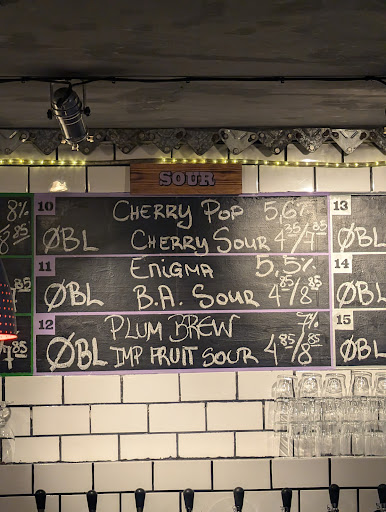 SOUR
8%
5.85
.85
7.85
10 CHERRY POP 5,6%
ØBL CHERRY SOUR 4.35/7.85
11 ENIGMA 5,5%
ØBL B.A. SOUR 4.85/8.85
12 PLUM BREW 7%
ØBL IMP FRUIT SOUR 4.85/8.85
13
ØBL
14
ØBL
15
ØBL